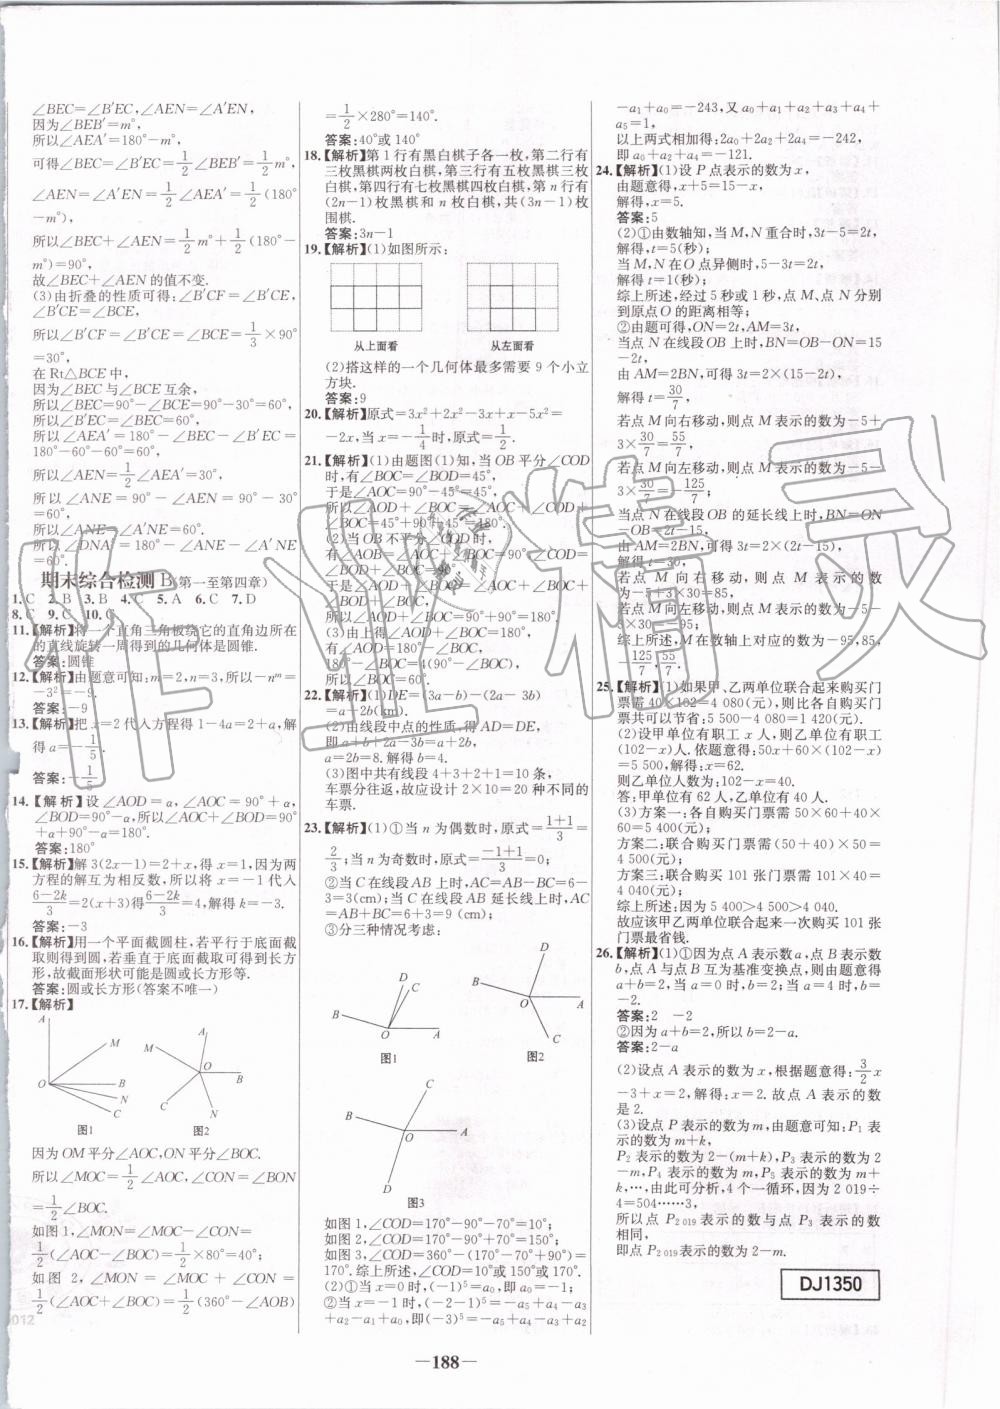 ∠BEC=∠B′EC,∠AEN=∠A′EN,
因为∠BEB′=m°,
所以∠AEA′=180°-m°,
可得∠BEC=∠B′EC=1/2∠BEB′=1/2m°,
∠AEN=∠A′EN=1/2∠AEA′=1/2(180°
-m°).
所以∠BEC+∠AEN=1/2m°+1/2(180°-
m°)=90°,
故∠BEC+∠AEN的值不变.
(3)由折叠的性质可得:∠B′CF=∠B′CE,
∠B′CE=∠BCE,
所以∠B′CF=∠B′CE=∠BCE=1/3×90°
=30°,
在Rt△BCE中,
因为∠BEC与∠BCE互余,
所以∠BEC=90°-∠BCE=90°-30°=60°,
所以∠B′EC=∠BEC=60°,
所以∠AEA′=180°-∠BEC-∠B′EC=
180°-60°-60°=60°,
所以∠AEN=1/2∠AEA′=30°,
所以∠ANE=90°-∠AEN=90°-30°
=60°,
所以∠ANE=∠A′NE=60°,
所以∠DNA′=180°-∠ANE-∠A′NE=60°.
期末综合检测B(第一至第四章)
1.C 2.B 3.B 4.C 5.A 6.C 7.D
8.C 9.C 10.C
11.【解析】将一个直角三角板绕它的直角边所在
的直线旋转一周得到的几何体是圆锥.
答案:圆锥
12.【解析】由题意可知:m=2,n=3,所以-nᵐ=
-3²=-9.
答案:-9
13.【解析】把x=2代入方程得1-4a=2+a,解
得a=-1/5.
答案:-1/5
14.【解析】设∠AOD=α,∠AOC=90°+α,
∠BOD=90°-α,所以∠AOC+∠BOD=90°
+α+90°-α=180°.
答案:180°
15.【解析】解3(2x-1)=2+x,得x=1,因为两
方程的解互为相反数,所以将x=-1代入
(6-2k)/3=2(x+3)得(6-2k)/3=4,解得k=-3.
答案:-3
16.【解析】用一个平面截圆柱,若平行于底面截
取则得到圆,若垂直于底面截取可得到长方
形,故截面形状可能是圆或长方形等.
答案:圆或长方形(答案不唯一)
17.【解析】
A M O B N C 图1
M A O B C N 图2
因为OM平分∠AOC,ON平分∠BOC.
所以∠MOC=1/2∠AOC,∠CON=∠BON
=1/2∠BOC.
如图1,∠MON=∠MOC-∠CON=
1/2(∠AOC-∠BOC)=1/2×80°=40°;
如图2,∠MON=∠MOC+∠CON=
1/2(∠AOC+∠BOC)=1/2(360°-∠AOB)
=1/2×280°=140°.
答案:40°或140°
18.【解析】第1行有黑白棋子各一枚,第二行有
三枚黑棋两枚白棋,第三行有五枚黑棋三枚
白棋,第四行有七枚黑棋四枚白棋,第n行有
(2n-1)枚黑棋和n枚白棋,共(3n-1)枚
围棋.
答案:3n-1
19.【解析】(1)如图所示:
从上面看 从左面看
(2)搭这样的一个几何体最多需要9个小立
方块.
答案:9
20.【解析】原式=3x²+2x²-3x+x-5x²=
-2x,当x=-1/4时,原式=1/2.
21.【解析】(1)由题图(1)知,当OB平分∠COD
时,有∠BOC=∠BOD=45°,
于是∠AOC=90°-45°=45°,
所以∠AOD+∠BOC=∠AOC+∠COD+
∠BOC=45°+90°+45°=180°.
(2)当OB不平分∠COD时,
有∠AOB=∠AOC+∠BOC=90°,
∠COD=∠BOD+∠BOC=90°,
于是∠AOD+∠BOC=∠AOC+∠BOC+
∠BOD+∠BOC,
所以∠AOD+∠BOC=90°+90°=180°.
(3)由上得∠AOD+∠BOC=180°,
有∠AOD=180°-∠BOC,
180°-∠BOC=4(90°-∠BOC),
所以∠BOC=60°.
22.【解析】(1)DE=(3a-b)-(2a-3b)
=a+2b(km).
(2)由线段中点的性质,得AD=DE,
即a+b+2a-3b=a+2b,
a=2b=8.解得b=4.
(3)图中共有线段4+3+2+1=10条,
车票分往返,故应设计2×10=20种不同的
车票.
23.【解析】(1)①当n为偶数时,原式=(1+1)/3=
2/3;当n为奇数时,原式=(-1+1)/3=0;
②当C在线段AB上时,AC=AB-BC=6-
3=3(cm);当C在线段AB延长线上时,
AC=AB+BC=6+3=9(cm);
③分三种情况考虑:
D C B O A 图1
D B O A C 图2
C B O A D 图3
如图1,∠COD=170°-90°-70°=10°;
如图2,∠COD=170°-90°+70°=150°;
如图3,∠COD=360°-(170°-70°+90°)=
170°.综上所述,∠COD=10°或150°或170°.
(2)①当x=0时,(-1)⁵=a₀,即a₀=-1.
②当x=-1时,(-2-1)⁵=-a₅+a₄-a₃+
a₂-a₁+a₀,即(-3)⁵=-a₅+a₄-a₃+a₂
-a₁+a₀=-243,又a₀+a₁+a₂+a₃+a₄+
a₅=1,
以上两式相加得:2a₀+2a₂+2a₄=-242,
即a₀+a₂+a₄=-121.
24.【解析】(1)设P点表示的数为x,
由题意得,x+5=15-x,
解得,x=5.
答案:5
(2)①由数轴知,当M,N重合时,3t-5=2t,
解得,t=5(秒);
当M,N在O点异侧时,5-3t=2t,
解得,t=1(秒);
综上所述,经过5秒或1秒,点M、点N分别
到原点O的距离相等;
②由题可得,ON=2t,AM=3t;
当点N在线段OB上时,BN=OB-ON=15
-2t,
由AM=2BN,可得3t=2×(15-2t),
解得t=30/7,
若点M向右移动,则点M表示的数为-5+
3×30/7=55/7,
若点M向左移动,则点M表示的数为-5-
3×30/7=-125/7;
当点N在线段OB的延长线上时,BN=ON
-OB=2t-15,
由AM=2BN,可得3t=2×(2t-15),
解得t=30,
若点M向右移动,则点M表示的数为
-5+3×30=85,
若点M向左移动,则点M表示的数为-5-
3×30=-95;
综上所述,M在数轴上对应的数为-95,85,
-125/7,55/7.
25.【解析】(1)如果甲、乙两单位联合起来购买门
票需40×102=4 080(元),则比各自购买门
票共可以节省:5 500-4 080=1 420(元).
(2)设甲单位有职工x人,则乙单位有职工
(102-x)人.依题意得:50x+60×(102-x)
=5 500,解得:x=62.
则乙单位人数为:102-x=40.
答:甲单位有62人,乙单位有40人.
(3)方案一:各自购买门票需50×60+40×
60=5 400(元);
方案二:联合购买门票需(50+40)×50=
4 500(元);
方案三:联合购买101张门票需101×40=
4 040(元);
综上所述:因为5 400>4 500>4 040.
故应该甲乙两单位联合起来一次购买101张
门票最省钱.
26.【解析】(1)①因为点A表示数a,点B表示数
b,点A与点B互为基准变换点,则由题意得
a+b=2,当a=0时,b=2;当a=4时,b=
-2.
答案:2 -2
②因为a+b=2,所以b=2-a.
答案:2-a
(2)设点A表示的数为x,根据题意得:3/2
x-3+x=2,解得:x=2.故点A表示的数
是2.
(3)设点P表示的数为m,由题意可知:P₁表
示的数为m+k,
P₂表示的数为2-(m+k),P₃表示的数为2
-m,P₄表示的数为m,P₅表示的数为m+
k,…,由此可分析,4个一循环,因为2 019÷
4=504……3,
所以点P₂₀₁₉表示的数与点P₃表示的数
相同,
即点P₂₀₁₉表示的数为2-m.
DJ1350
—188—
作业精灵